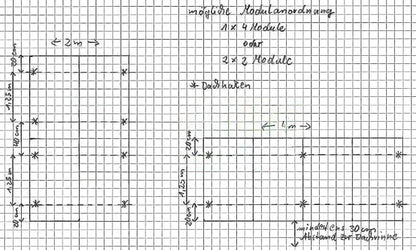 mögliche Modulanordnung
1 x 4 Module
oder
2 x 2 Module
* Dachhaken
2 m
20cm
1,25m
40cm
1,25m
20cm
1 m
20cm
1,25m
20cm
mindestens 30cm
Abstand zur Dachrinne